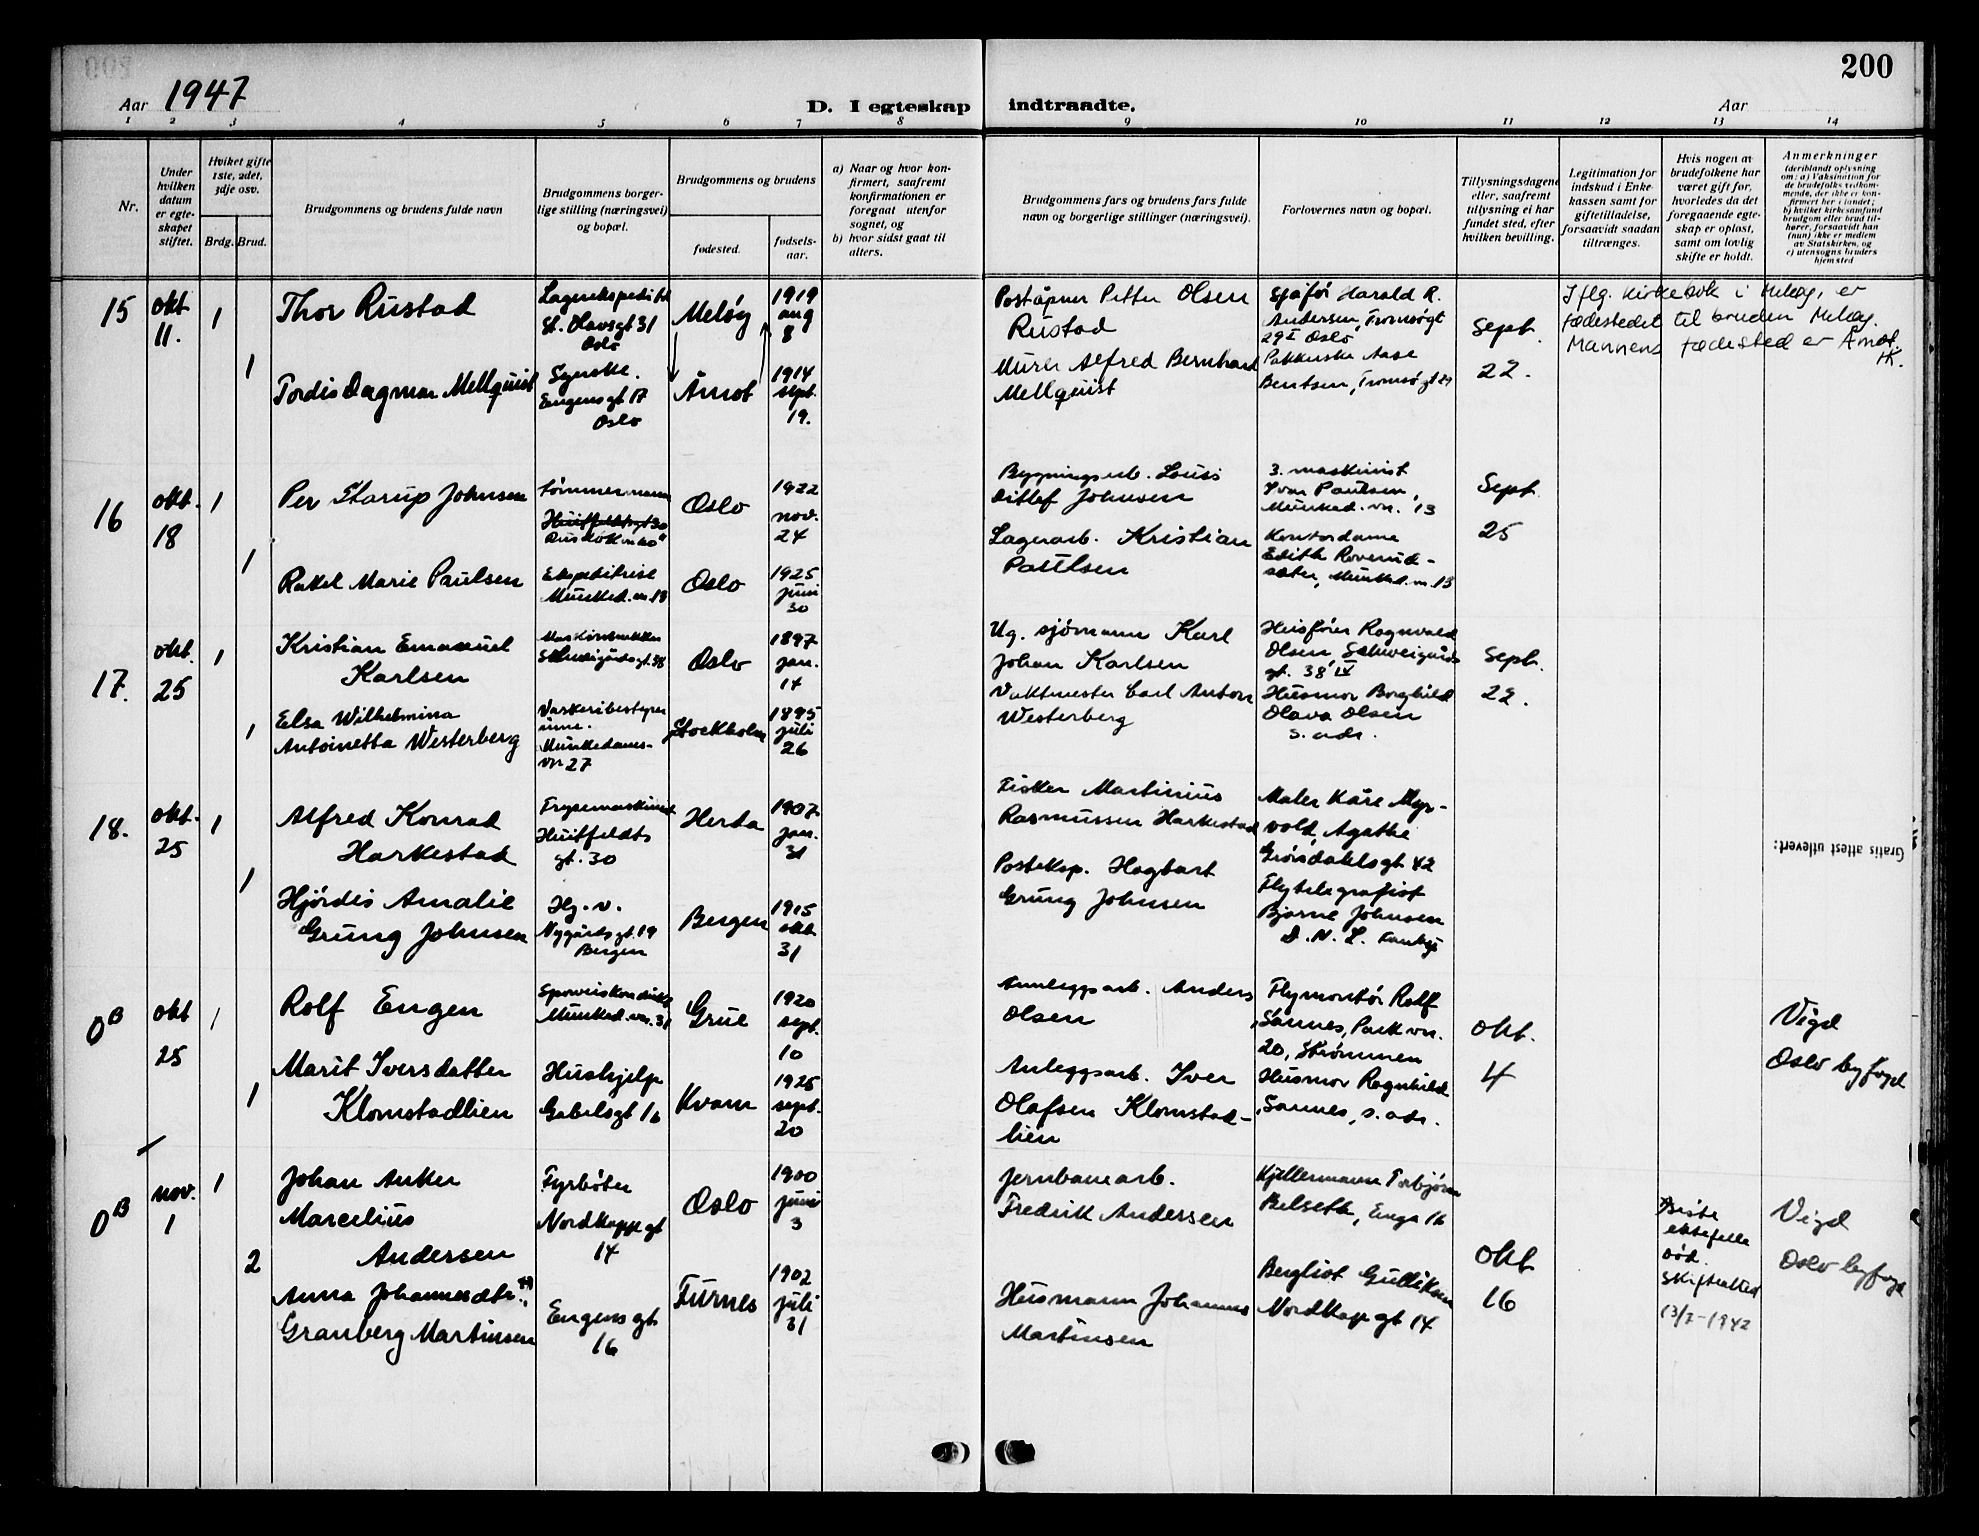 200
Aar 1947
D. I egteskap indtraadte.
Aar
1 2 3 4 5 6 7 8 9 10 11 12 13 14
Nr.
Under
hvilken
datum
er egte-
skapet
stiftet.
Hvilket gifte
1ste, 2det,
3dje osv.
Brdg. Brud.
Brudgommens og brudens fulde navn
Brudgommens borger-
lige stilling (næringsvei)
og bopæl.
Brudgommens og brudens
fødested.
fødsels-
aar.
a) Naar og hvor kon-
firmert, saafremt
konfirmationen er
foregaat utenfor
sognet, og
b) hvor sidst gaat til
alters.
Brudgommens fars og brudens fars fulde
navn og borgerlige stillinger (næringsvei).
Forlovernes navn og bopæl.
Tillysningsdagene
eller, saafremt
tillysning ei har
fundet sted, efter
hvilken bevilling.
Legitimation for
indskud i Enke-
kassen samt for
giftetilladelse,
forsaavidt saadan
tiltrænges.
Hvis nogen av
brudefolkene har
været gift før,
hvorledes da det
foregaaende egte-
skap er opløst,
samt om lovlig
skifte er holdt.
Anmerkninger
(deriblandt oplysning
om: a) Vaksination for
de brudefolks vedkom-
mende, der ikke er kon-
firmert her i landet;
b) hvilket kirkesamfund
brudgom eller brud til-
hører, forsaavidt han
(hun) ikke er medlem
av Statskirken, og
c) utensogns bruders
hjemsted
15
okt
11.
1
Thor Rustad
Lagerekspeditør
St. Olavsgt 31
Oslo
Meløy
1919
aug
8
Poståpner Petter Olsen
Rustad
Sjåfør Harald R.
Andersen, Tromsøgt
29 I Oslo
Sept.
22.
Iflg. kirkebok i Meløy, er
fødestedet til bruden Meløy.
Mannens fødested er Åmot.
HK.
1
Tordis Dagmar Mellquist
Syerske.
Engensgt 17
Oslo
Åmot
1914
sept.
19.
Murer Alfred Bernhard
Mellquist
Pakkerske Aase
Bentsen, Tromsøgt 29
16
okt.
18
1
Per Starup Johnsen
Tømmermann
Huitfeldtsgt 30
Oslo
1922
nov.
24
Bygningsarb. Louis
Ditlef Johnsen
3. maskinist
Ivar Paulsen,
Munked. vn. 13
Sept
25
1
Rakel Marie Paulsen
Ekspeditrise
Munked. vn. 13
Oslo
1925
juni
30
Lagerarb. Kristian
Paulsen
Kontordame
Edith Roverud-
sæter, Munked. vn. 13
17.
okt.
25
1
Kristian Emanuel
Karlsen
Maskinsnekker
Schweigårdsgt. 38
Oslo
1897
jan.
14
Ug. sjømann Karl
Johan Karlsen
Heisfører Ragnvald
Olsen Schweigårds
gt. 38 IV
Sept.
22.
1
Elsa Wilhelmina
Antoinetta Westerberg
Vaskeribestyrer
inne.
Munkedams-
vn 27
Stockholm
1895
juli
26
Vaktmester Carl Anton
Westerberg
Husmor Borghild
Olava Olsen
s. adr.
18.
okt.
25
1
Alfred Konrad
Harkestad
Frysemaskinist
Huitfeldts
gt. 30
Herdla
1907
jan.
31
Fisker Martinius
Rasmussen Harkestad
Maler Kåre Myr-
vold, Agathe
Grøndahlsgt 42
Gratis attest utlevert:
1
Hjørdis Amalie
Grung Johnsen
Hj. v.
Nygårdsgt. 19
Bergen
Bergen
1915
okt.
31
Posteksp. Hagbart
Grung Johnsen
Flytelegrafist
Bjarne Johnsen
D. N. L.
OB
okt
25
1
Rolf Engen
Sporveiskonduktør
Munked. vn. 31
Grue
1920
sept.
10
Anleggsarb. Anders
Olsen
Flymontør Rolf
Sannes, Park vn.
20, Strømmen
okt.
4
Vigd
Oslo byfogd
1
Marit Iversdatter
Klomstadlien
Hushjelp
Gabelsgt 16
Kvam
1925
sept.
20
Anleggsarb. Iver
Olafsen Klomstad-
lien
Husmor Ragnhild
Sannes, s. adr.
OB
nov.
1
1
Johan Anker
Marcelius
Andersen
Fyrbøter
Nordkappgt
14
Oslo
1900
juni
3
Jernbanearb.
Fredrik Andersen
Kjellermann Torbjørn
Belseth, Enga 16
okt
16
Første
ektefelle
død.
Skifteattest
13/7-1942
Vigd
Oslo byfogd
2
Anna Johannesdtr.
Granberg Martinsen
Engensgt
16
Furnes
1902
juli
31
Husmann Johannes
Martinsen
Bergliot Gulliksen
Nordkap gt 14